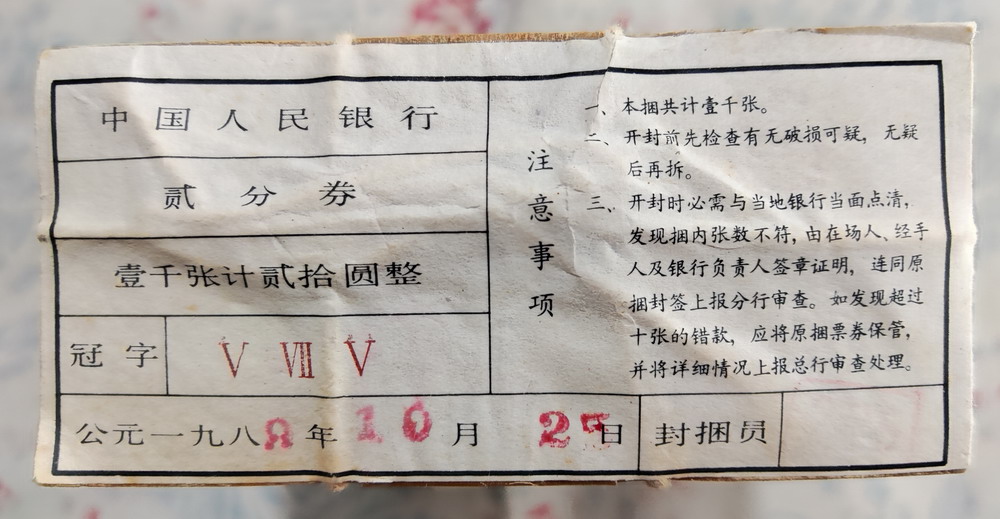 中国人民银行
贰分券
壹千张计贰拾圆整
冠字 V VII V
公元一九八8年10月25日 封捆员
注意事项
一、本捆共计壹千张。
二、开封前先检查有无破损可疑，无疑
后再拆。
三、开封时必需与当地银行当面点清，
发现捆内张数不符，由在场人、经手
人及银行负责人签章证明，连同原
捆封签上报分行审查。如发现超过
十张的错款，应将原捆票券保管，
并将详细情况上报总行审查处理。